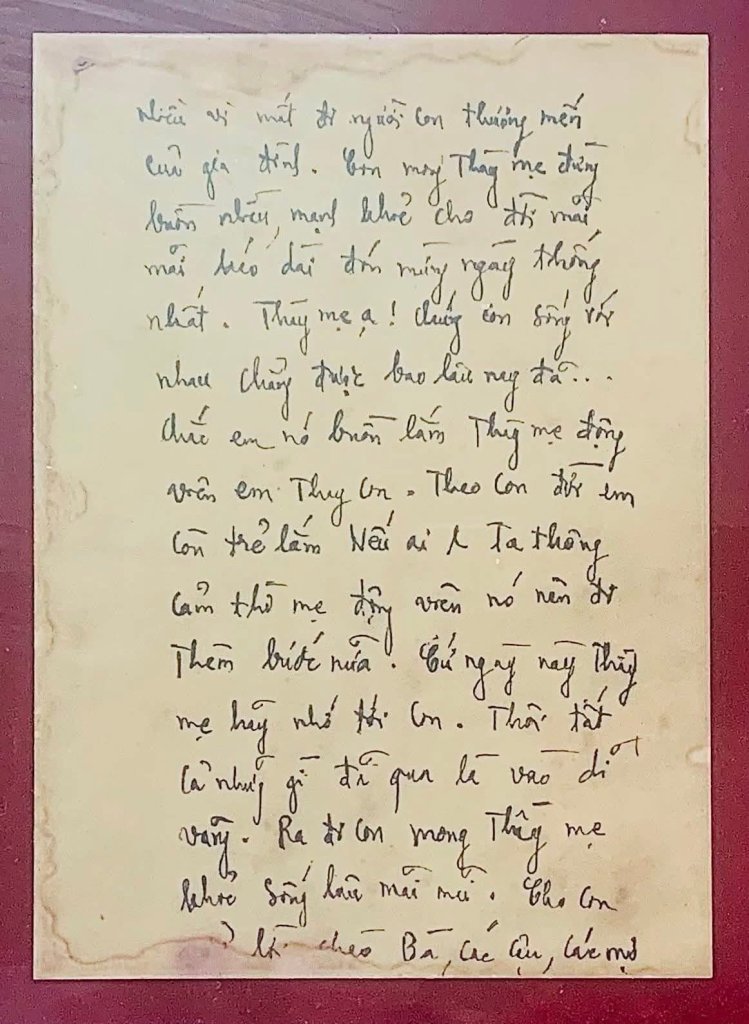 nhiều vì mất đi người con thương mến
của gia đình. Con mong Thầy mẹ đừng
buồn nhiều, mạnh khoẻ cho đời mãi
mãi kéo dài đón mừng ngày thống
nhất. Thầy mẹ ạ! chúng con sống với
nhau chẳng được bao lâu nay đã...
chắc em nó buồn lắm Thầy mẹ động
viên em Thay con. Theo con đời em
còn trẻ lắm Nếu ai thông
cảm thì mẹ động viên nó nên đi
Thêm bước nữa. Cứ ngày này Thầy
mẹ hãy nhớ tới con. Thôi tất
cả những gì đã qua là vào dĩ
vãng. Ra đi con mong Thầy mẹ
khoẻ sống lâu mãi mãi. Cho con
lời chào Bà, các cậu, các mợ